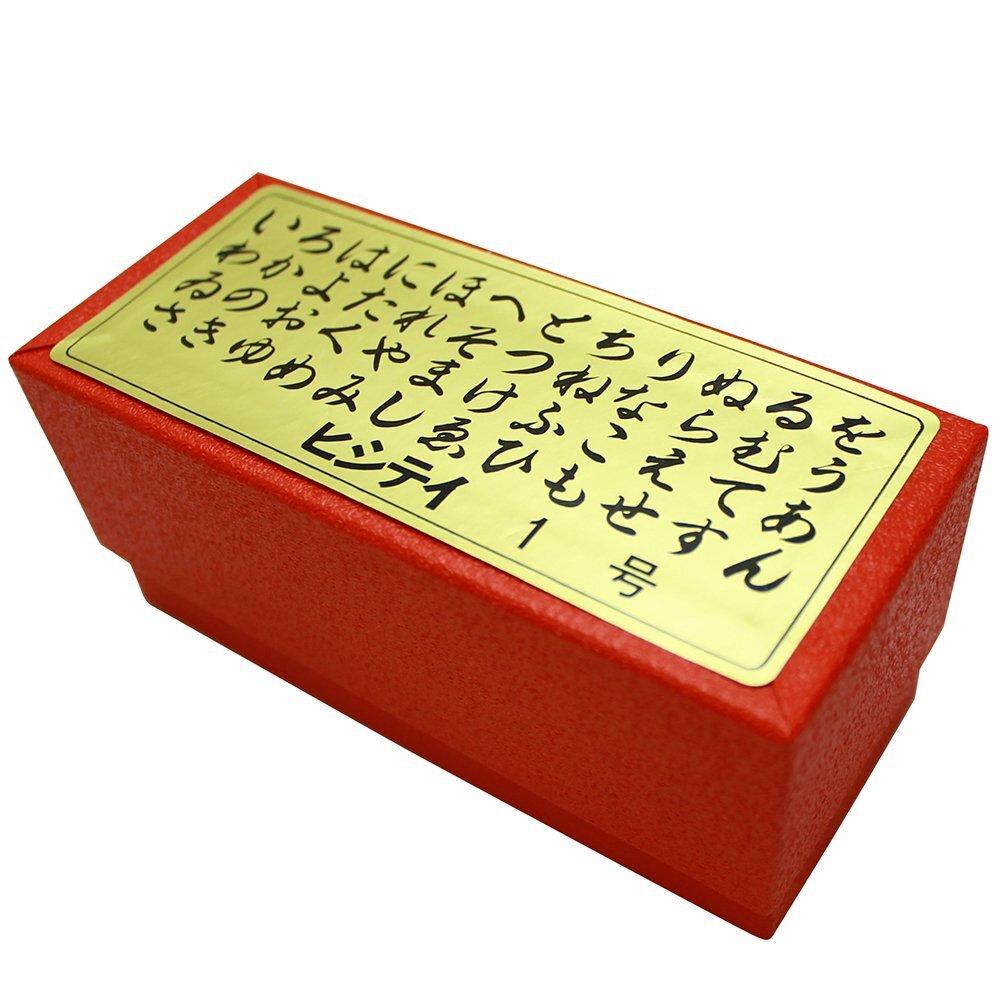 いろはにほへとちりぬるを
わかよたれそつねならむう
ゐのおくやまけふこえてあ
さきゆめみしゑひもせすん
ヒシテイ 1 号